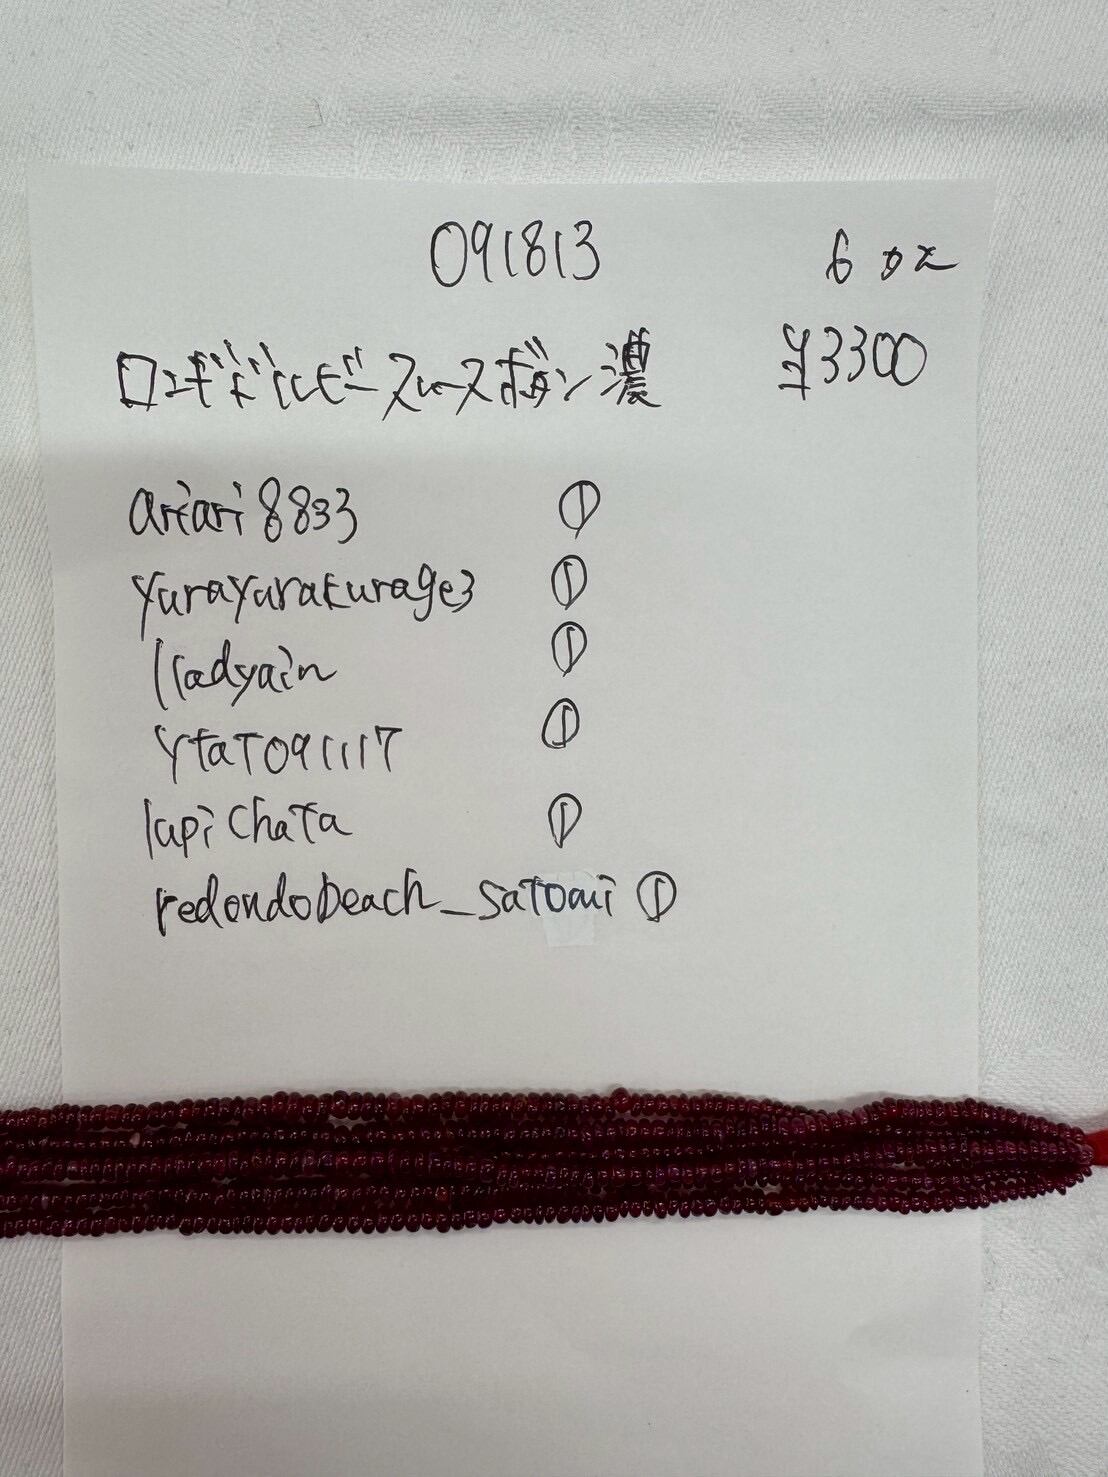 091813
6本
¥3300
ロンボドルビースムースボタン濃
ariari8833 ①
yurayurakurage3 ①
lladyain ①
ytat091117 ①
lapichata ①
redondobeach_satomi ①